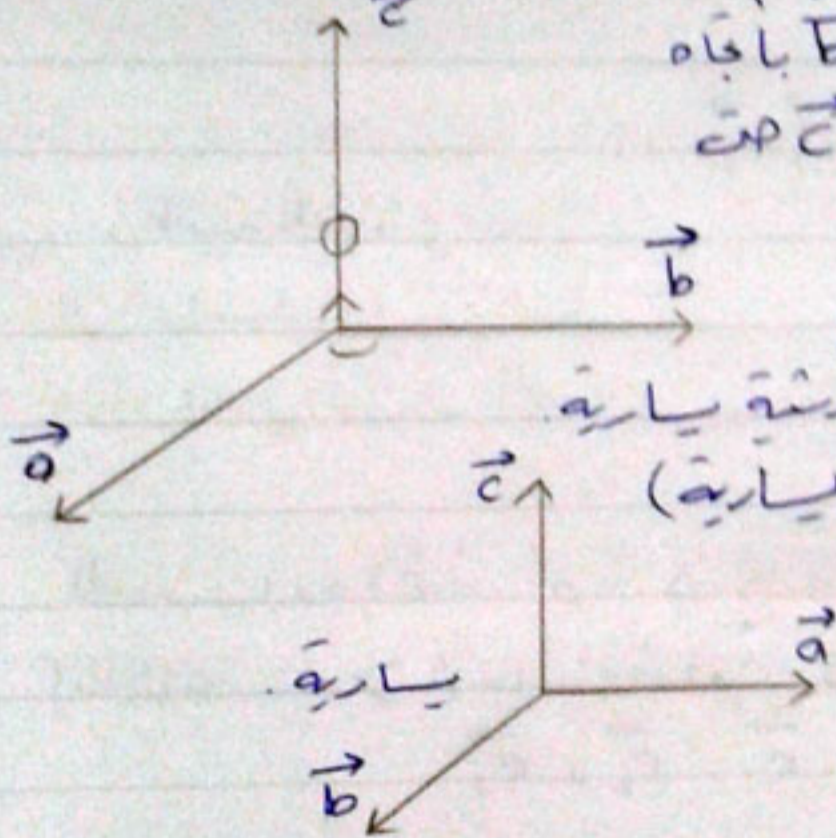 c
b باتجاه
c حتى
b
a
يسارية.
c يسارية)
a
يسارية.
b